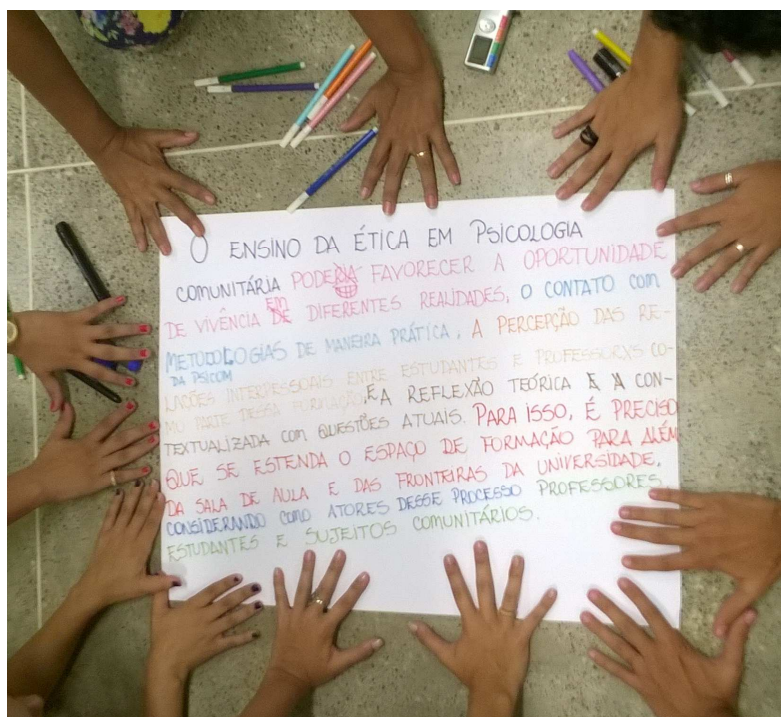 O ENSINO DA ÉTICA EM PSICOLOGIA
COMUNITÁRIA PODERIA FAVORECER A OPORTUNIDADE
DE VIVÊNCIA EM DIFERENTES REALIDADES, O CONTATO COM
METODOLOGIAS DE MANEIRA PRÁTICA, A PERCEPÇÃO DAS RE-
DA PSICOM
LAÇÕES INTERPESSOAIS ENTRE ESTUDANTES E PROFESSORXS CO-
MO PARTE DESSA FORMAÇÃO, E A REFLEXÃO TEÓRICA CON-
TEXTUALIZADA COM QUESTÕES ATUAIS. PARA ISSO, É PRECISO
QUE SE ESTENDA O ESPAÇO DE FORMAÇÃO PARA ALÉM
DA SALA DE AULA E DAS FRONTEIRAS DA UNIVERSIDADE,
CONSIDERANDO COMO ATORES DESSE PROCESSO PROFESSORES,
ESTUDANTES E SUJEITOS COMUNITÁRIOS.